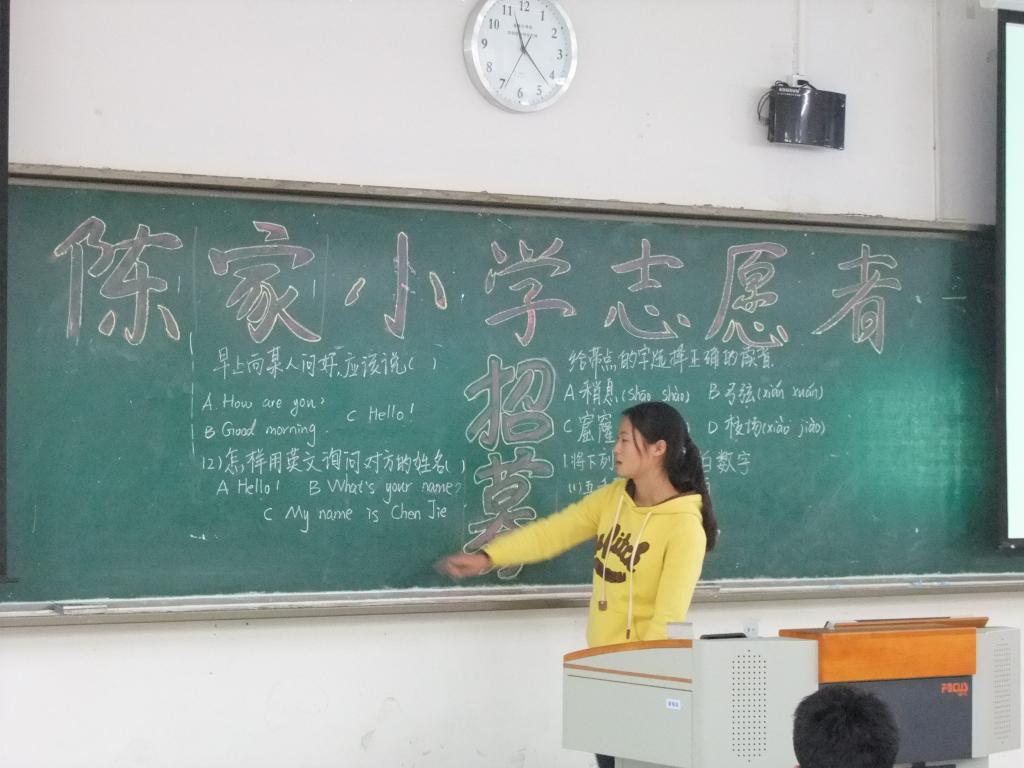 12
11
1
10
2
9
3
8
4
7
5
6
陈家小学志愿者
招募
早上向某人问好,应该说( )
A. How are you?
C Hello!
B Good morning.
(2)怎样用英文询问对方的姓名( )
A Hello! B What's your name?
C My name is Chen Jie
给带点的字选择正确的读音
A 稍息(shāo shào) B 弓弦(xián xuán)
C 窟窿
D 校场(xiào jiào)
1.将下列
白数字
(1)
FOCUS